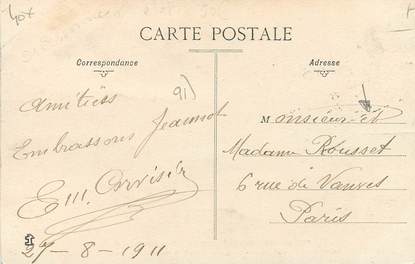 CARTE POSTALE
Correspondance
Adresse
91)
Amitiés
Embrassons Jeannot
Em.
27-8-1911
Monsieur et
Madame Rousset
6 rue de Vanves
Paris